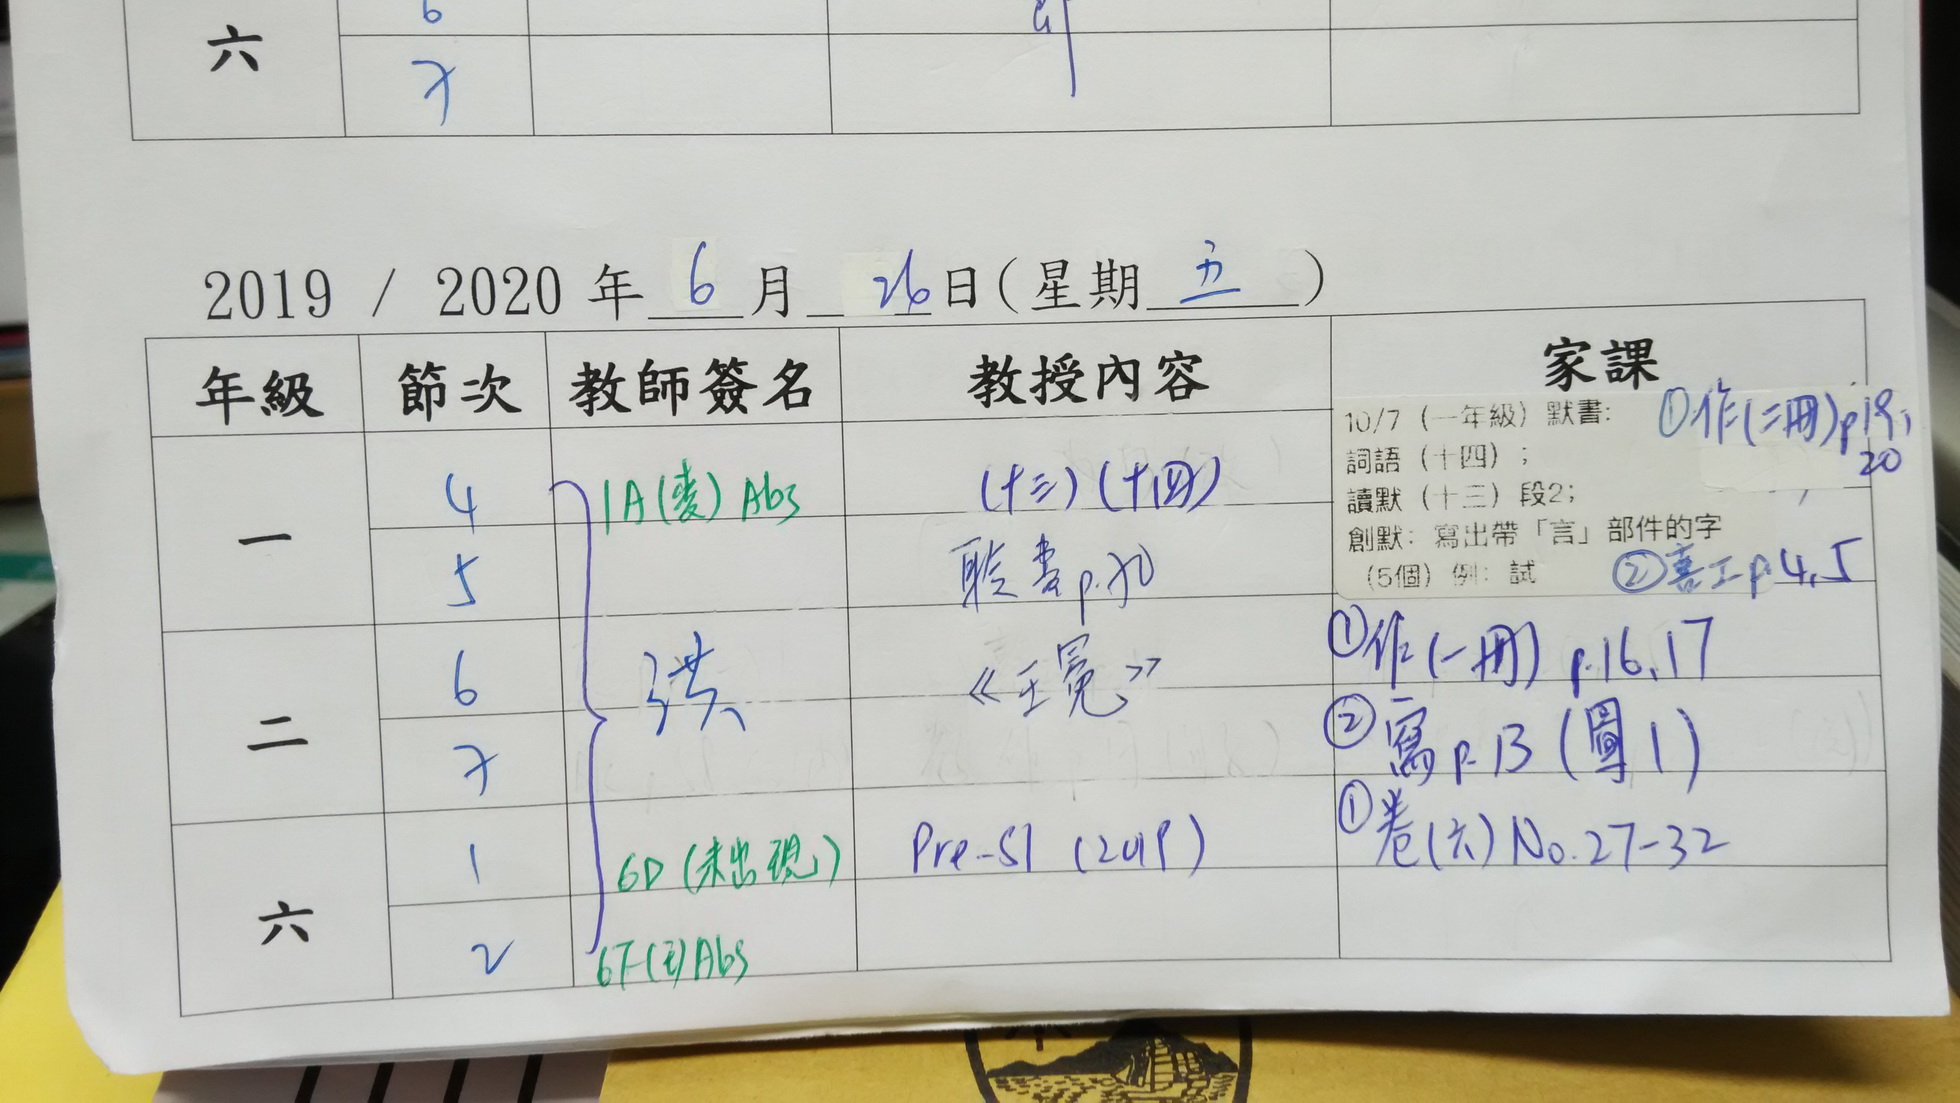 六
6
7
2019 / 2020 年 6 月 26 日(星期 五 )
年級 節次 教師簽名 教授內容 家課
一
4
1A(麥) Abs
(十三)(十四)
5
聆書 p.70
10/7 (一年級) 默書:
詞語 (十四) ;
讀默 (十三) 段2;
創默: 寫出帶「言」部件的字
(5個) 例: 試
①作(二冊)p.19,
20
② p.4,5
二
6
洪
《王冕》
①作(一冊) p.16,17
7
②寫 p.13 (圖1)
六
1
6D (未出現)
Pre-S1 (2019)
①卷(六) No.27-32
2
6F(王)Abs